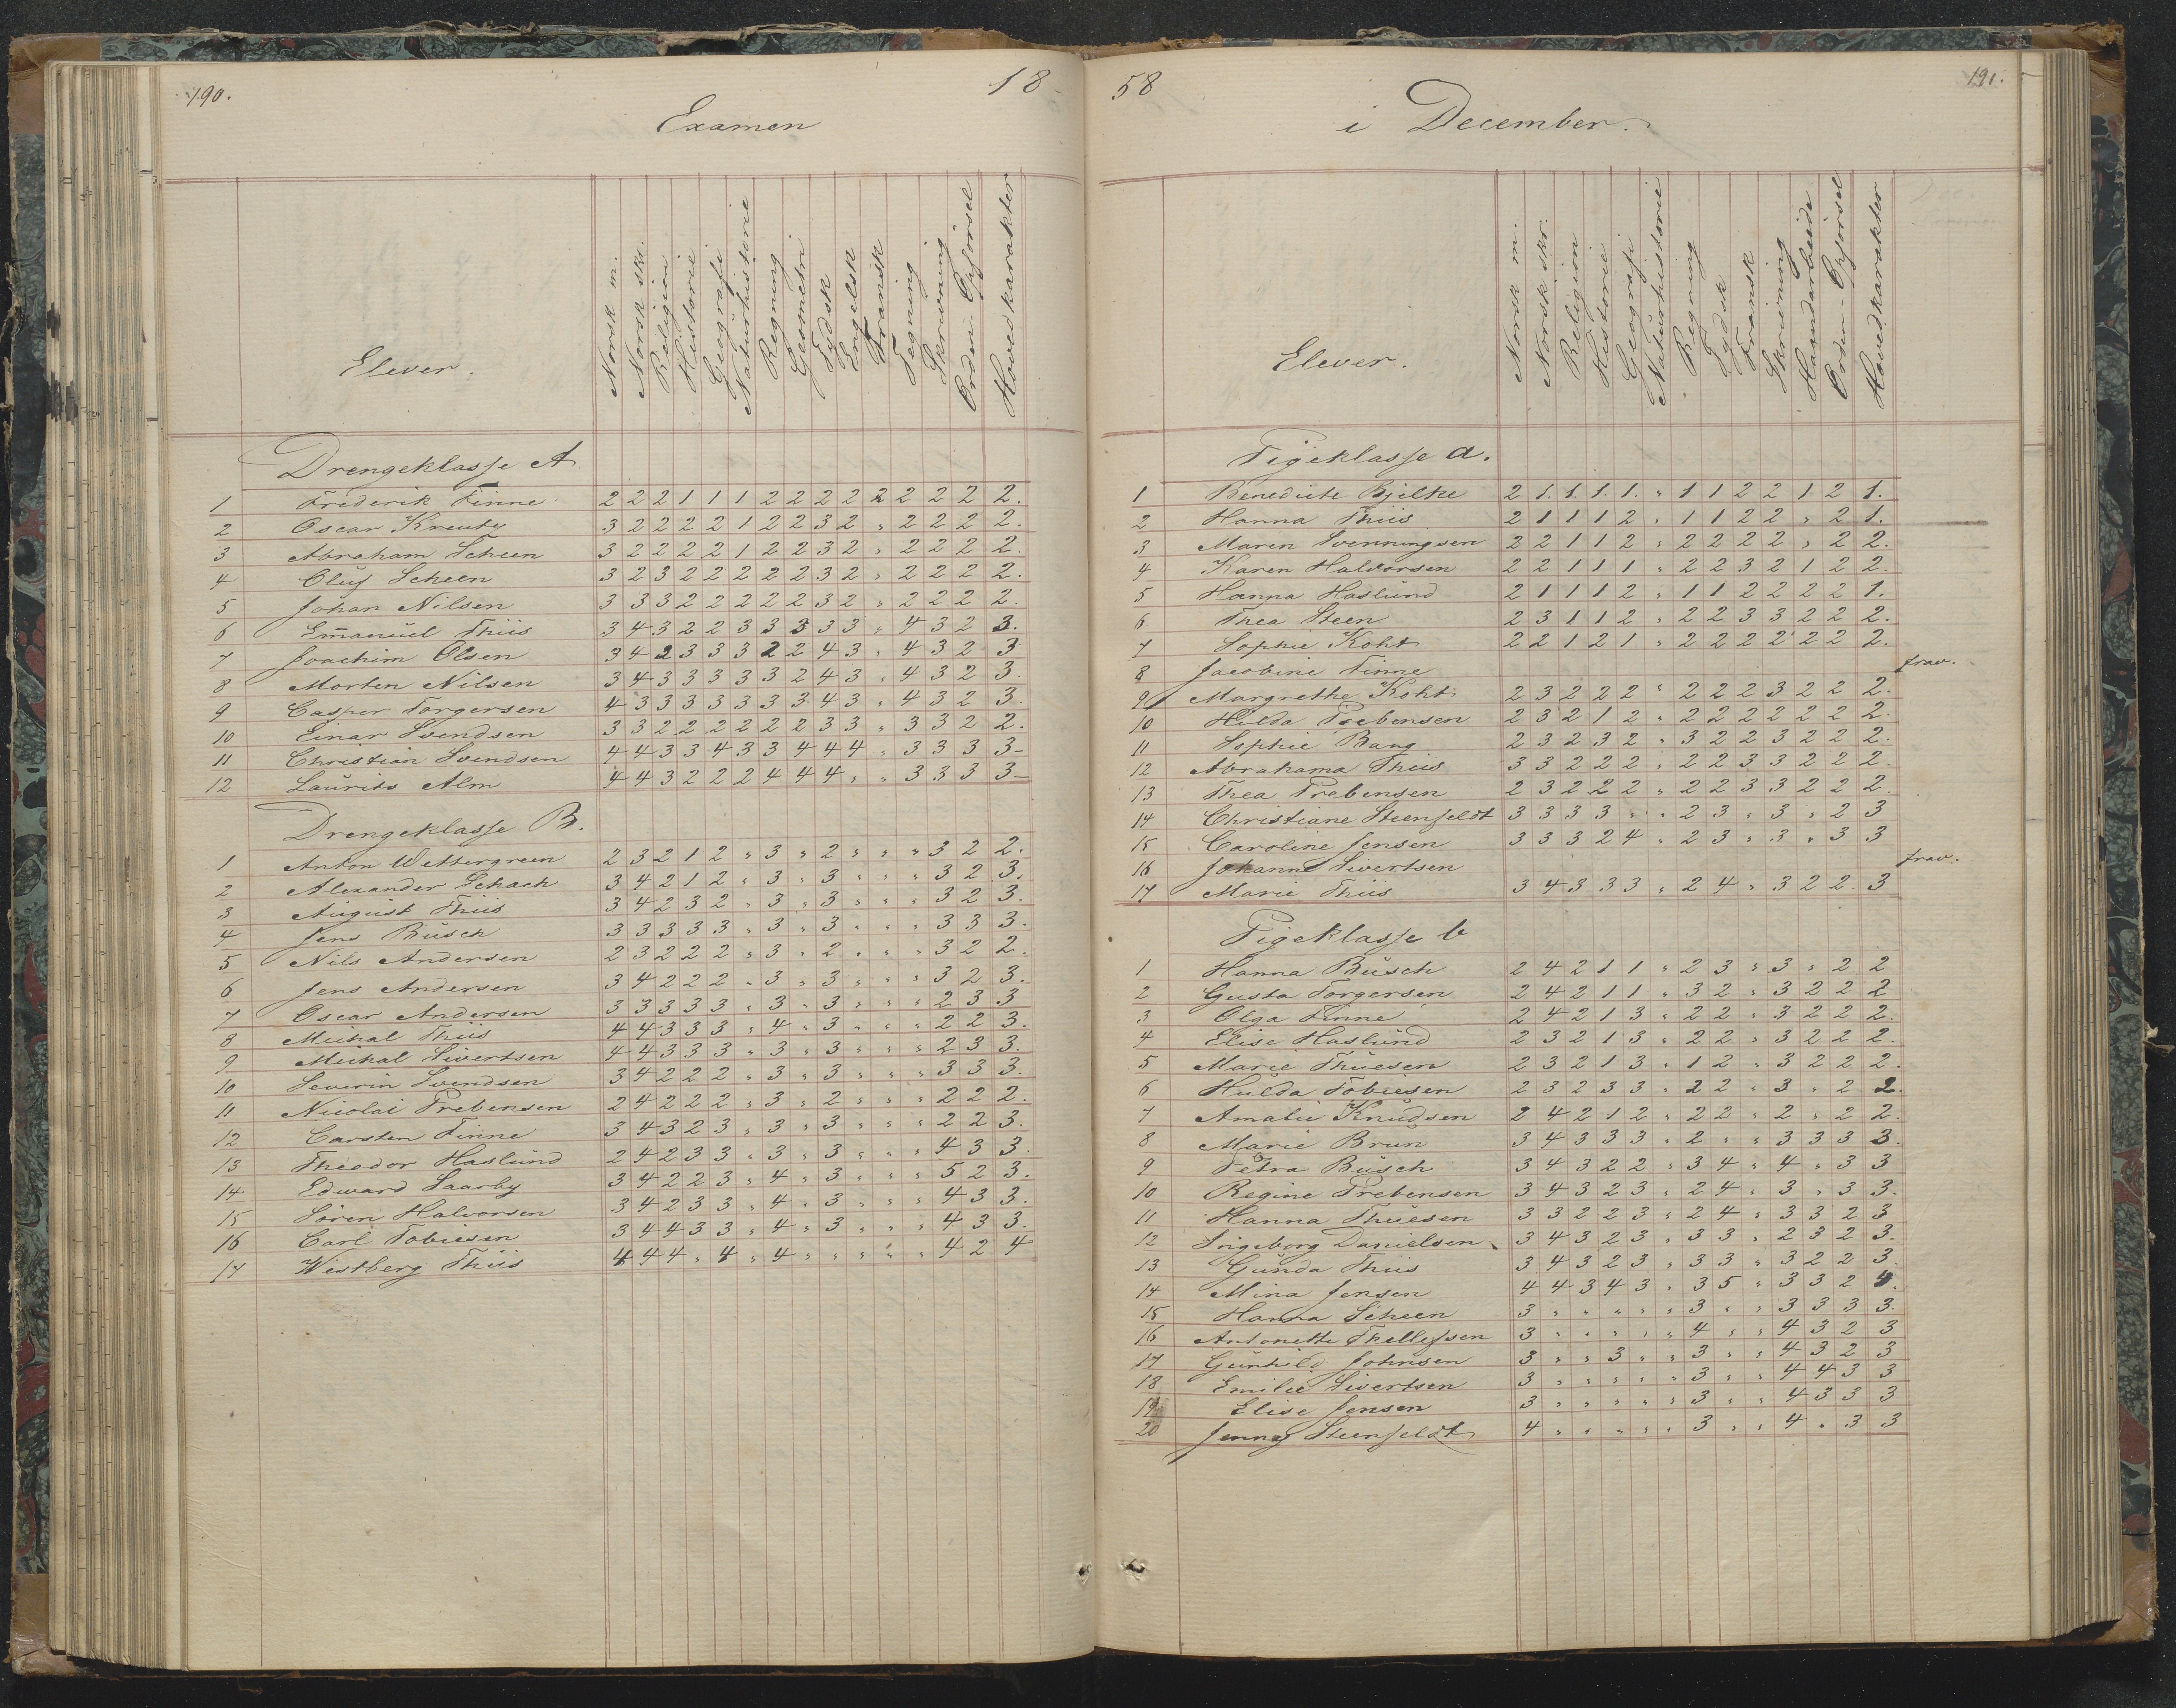 190.
18
Examen
Elever.
Norsk m.
Norsk skr.
Religion
Historie
Geografi
Naturhistorie
Regning
Geometri
Tydsk
Engelsk
Fransk
Tegning
Skrivning
Orden - Opførsel
Hovedkarakter
Drengeklasse A
1 Frederik Finne 2 2 2 1 1 1 2 2 2 2 2 2 2 2 2.
2 Oscar Kreutz 3 2 2 2 2 1 2 2 3 2 " 2 2 2 2.
3 Abraham Scheen 3 2 2 2 2 1 2 2 3 2 " 2 2 2 2.
4 Oluf Scheen 3 2 3 2 2 2 2 2 3 2 " 2 2 2 2.
5 Johan Nilsen 3 3 3 2 2 2 2 2 3 2 " 2 2 2 2.
6 Em̄anuel Thiis 3 4 3 2 2 3 3 3 3 3 " 4 3 2 3.
7 Joachim Olsen 3 4 2 3 3 3 2 2 4 3 " 4 3 2 3
8 Morten Nilsen 3 4 3 3 3 3 3 2 4 3 " 4 3 2 3.
9 Casper Torgersen 4 3 3 3 3 3 3 3 4 3 " 4 3 2 3.
10 Einar Svendsen 3 3 2 2 2 2 2 2 3 3 " 3 3 2 2.
11 Christian Svendsen 4 4 3 3 4 3 3 4 4 4 " 3 3 3 3-
12 Laurits Alm 4 4 3 2 2 2 4 4 4 " " 3 3 3 3-
Drengeklasse B.
1 Anton Wettergreen 2 3 2 1 2 " 3 " 2 " " " 3 2 2.
2 Alexander Schach 3 4 2 1 2 " 3 " 3 " " " 3 2 3.
3 August Thiis 3 4 2 3 2 " 3 " 3 " " " 3 2 3.
4 Jens Busch 3 3 3 3 3 " 3 " 3 " " " 3 3 3.
5 Nils Andersen 2 3 2 2 2 " 3 " 2 " " " 3 2 2.
6 Jens Andersen 3 4 2 2 2 " 3 " 3 " " " 3 2 3.
7 Oscar Andersen 3 3 3 3 3 " 3 " 3 " " " 2 3 3
8 Michal Thiis 4 4 3 3 3 " 4 " 3 " " " 2 2 3.
9 Michal Sivertsen 4 4 3 3 3 " 3 " 3 " " " 2 3 3.
10 Severin Svendsen 3 4 2 2 2 " 3 " 3 " " " 3 3 3.
11 Nicolai Prebensen 2 4 2 2 2 " 3 " 2 " " " 2 2 2.
12 Carsten Finne 3 4 3 2 3 " 3 " 3 " " " 2 2 3.
13 Theodor Haslund 2 4 2 3 3 " 3 " 3 " " " 4 3 3.
14 Edward Saarby 3 4 2 2 3 " 4 " 3 " " " 5 2 3.
15 Søren Halvorsen 3 4 2 3 3 " 4 " 3 " " " 4 3 3.
16 Carl Tobiesen 3 4 4 3 3 " 4 " 3 " " " 4 3 3.
17 Westberg Thiis 4 4 4 " 4 " 4 " " " " " 4 2 4
58
191.
i December.
Elever.
Norsk m.
Norsk skr.
Religion
Historie
Geografi
Naturhistorie
Regning
Tydsk
Fransk
Skrivning
Haandarbeide
Orden - Opførsel
Hovedkarakter
Pigeklasse a.
1 Benedicte Bjelke 2 1. 1. 1. 1. " 1 1 2 2 1 2 1.
2 Hanna Thiis 2 1 1 1 2 " 1 1 2 2 " 2 1.
3 Maren Svenningsen 2 2 1 1 2 " 2 2 2 2 " 2 2.
4 Karen Halvorsen 2 2 1 1 1 " 2 2 3 2 1 2 2.
5 Hanna Haslund 2 1 1 1 2 " 1 1 2 2 2 2 1.
6 Thea Steen 2 3 1 1 2 " 2 2 3 3 2 2 2.
7 Sophie Koht 2 2 1 2 1 " 2 2 2 2 2 2 2.
8 Jacobine Finne frav.
9 Margrethe Koht 2 3 2 2 2 " 2 2 2 3 2 2 2.
10 Hilda Prebensen 2 3 2 1 2 " 2 2 2 2 2 2 2.
11 Sophie Bang 2 3 2 3 2 " 3 2 2 3 2 2 2.
12 Abrahama Thiis 3 3 2 2 2 " 2 2 3 3 2 2 2.
13 Thea Prebensen 2 3 2 2 2 " 2 2 3 3 2 2 2.
14 Christiane Steenfeldt 3 3 3 3 " " 2 3 " 3 " 2 3
15 Caroline Jensen 3 3 3 2 4 " 2 3 " 3 " 3 3
16 Johanne Sivertsen frav.
17 Marie Thiis 3 4 3 3 3 " 2 4 " 3 2 2. 3
Pigeklasse b
1 Hanna Busch 2 4 2 1 1 " 2 3 " 3 " 2 2
2 Gusta Torgersen 2 4 2 1 1 " 3 2 " 3 2 2 2
3 Olga Finne 2 4 2 1 3 " 2 2 " 3 2 2 2.
4 Elise Haslund 2 3 2 1 3 " 2 2 " 3 2 2 2.
5 Marie Thuesen 2 3 2 1 3 " 1 2 " 3 2 2 2.
6 Hulda Tobiesen 2 3 2 3 3 " 2 2 " 3 " 2 2.
7 Amalie Knudsen 2 4 2 1 2 " 2 2 " 2 " 2 2.
8 Marie Brun 3 4 3 3 3 " 2 " " 3 3 3 3.
9 Petra Busch 3 4 3 2 2 " 3 4 " 4 " 3 3
10 Regine Prebensen 3 4 3 2 3 " 2 4 " 3 " 3 3.
11 Hanna Thuesen 3 3 2 2 3 " 2 4 " 3 3 2 3
12 Ingeborg Danielsen 3 4 3 2 3 " 3 3 " 2 3 2 3.
13 Gunda Thiis 3 4 3 2 3 " 3 3 " 3 2 2 3.
14 Mina Jensen 4 4 3 4 3 " 3 5 " 3 3 2 4.
15 Hanna Scheen 3 " " " " " 3 " " 3 3 3 3.
16 Antonette Thellefsen 3 " " " " " 4 " " 4 3 2 3
17 Gunhild Johnsen 3 " " 3 " " 3 " " 4 3 2 3
18 Emilie Sivertsen 3 " " " " " 3 " " 4 4 3 3
19 Elise Jensen 3 " " " " " 3 " " 4 3 3 3
20 Jenny Steenfeldt 4 " " " " " 3 " " 4 " 3 3